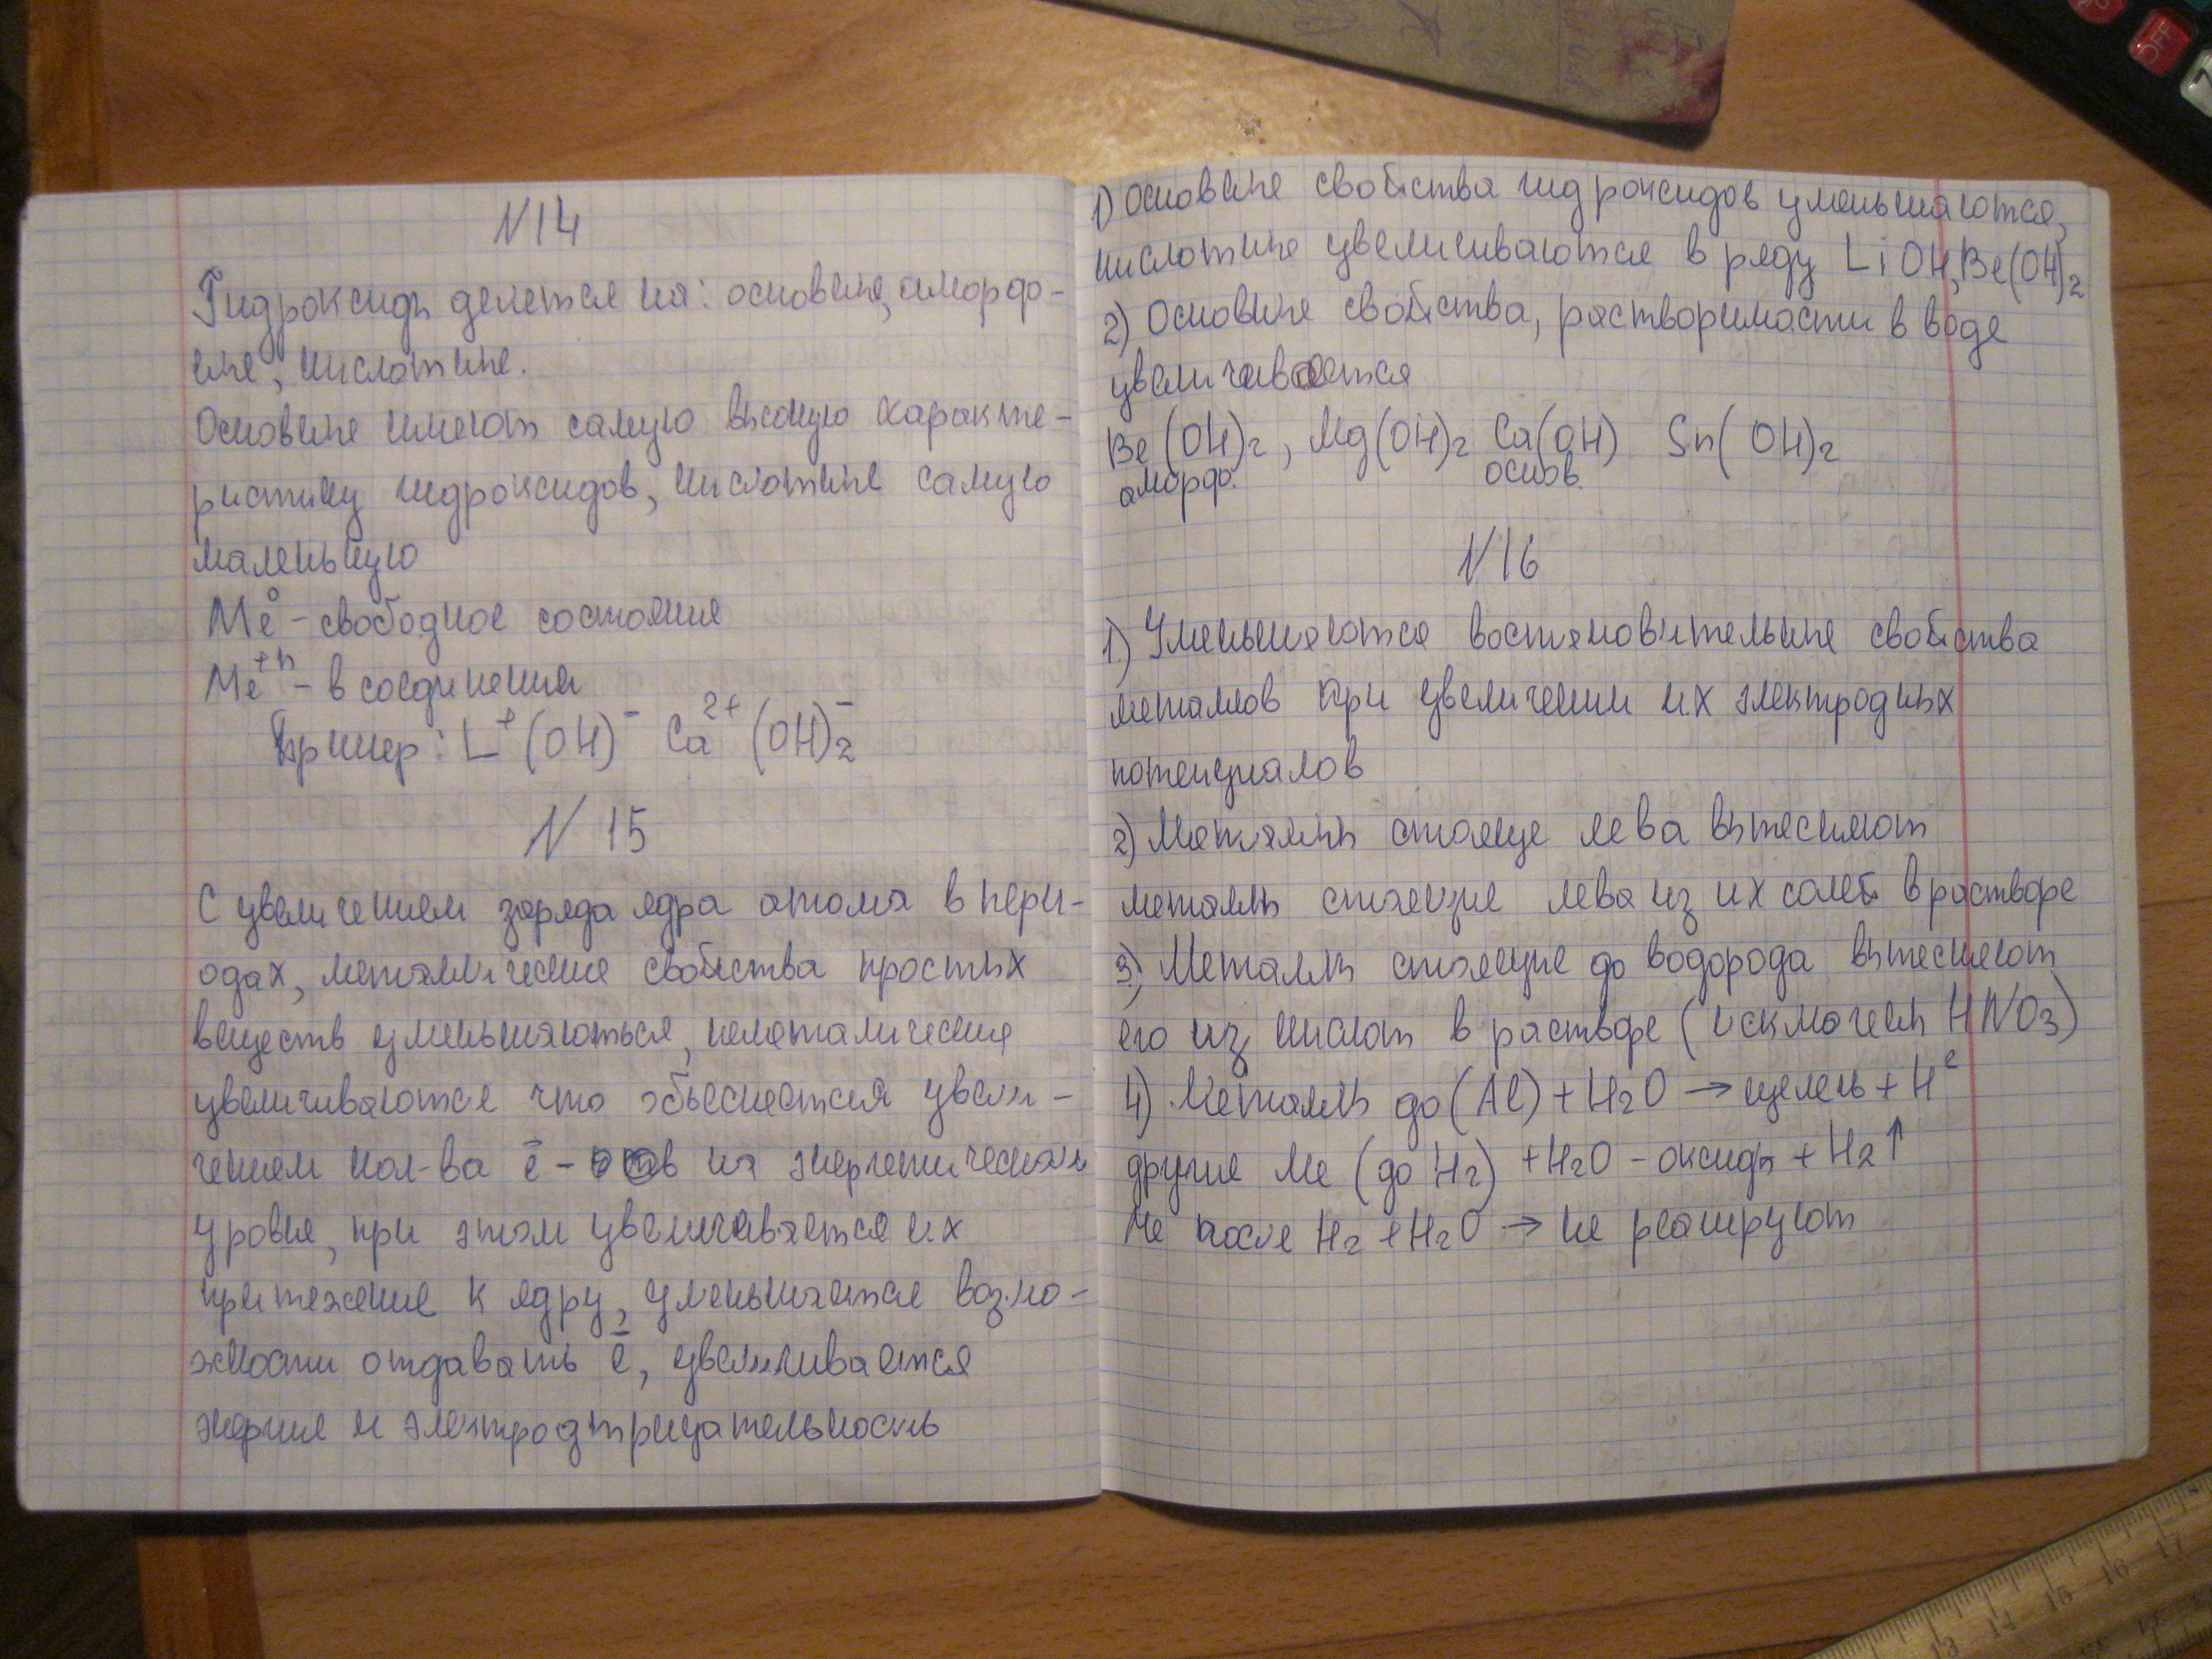 N 14
Гидроксиды делется на: основные, аморфо-
ные, кислотные.
Основные имеют самую высокую характе-
ристику гидроксидов, кислотные самую
маленькую
Me° - свободное состояние
Me⁺ⁿ - в соединении
Пример: L⁺(OH)⁻ Ca²⁺(OH)₂⁻
N 15
С увеличением заряда ядра атома в пери-
одах, металлические свойства простых
веществ уменьшяються, неметалические
увеличиваются что объеснеется увели-
чением кол-ва ē - в на энергетическом
уровне, при этом увеличивается их
притежение к ядру, уменьшяется возмо-
жности отдавать ē, увеличивается
энергия и электродтрицательность
1) Основные свойства гидроксидов уменьшяются,
кислотные увеличиваются в ряду LiOH, Be(OH)₂
2) Основные свойства, растворимости в воде
увеличивается
Be(OH)₂, Mg(OH)₂ Ca(OH) Sn(OH)₂
аморф. основ.
N 16
1) Уменьшяются востяновительные свойства
металлов при увеличении их электродных
потенциалов
2) Металлы стояще лева вытесняют
металлы стоящие лева из их солей в растворе
3) Металлы стоящие до водорода вытесняют
его из кислот в растворе (исключень HNO₃)
4) Металлы до (Al) + H₂O → щелень + H²
другие Me (до H₂) + H₂O - оксиды + H₂↑
Me после H₂ + H₂O → не реагируют
OFF
7
13 14 15 16 17